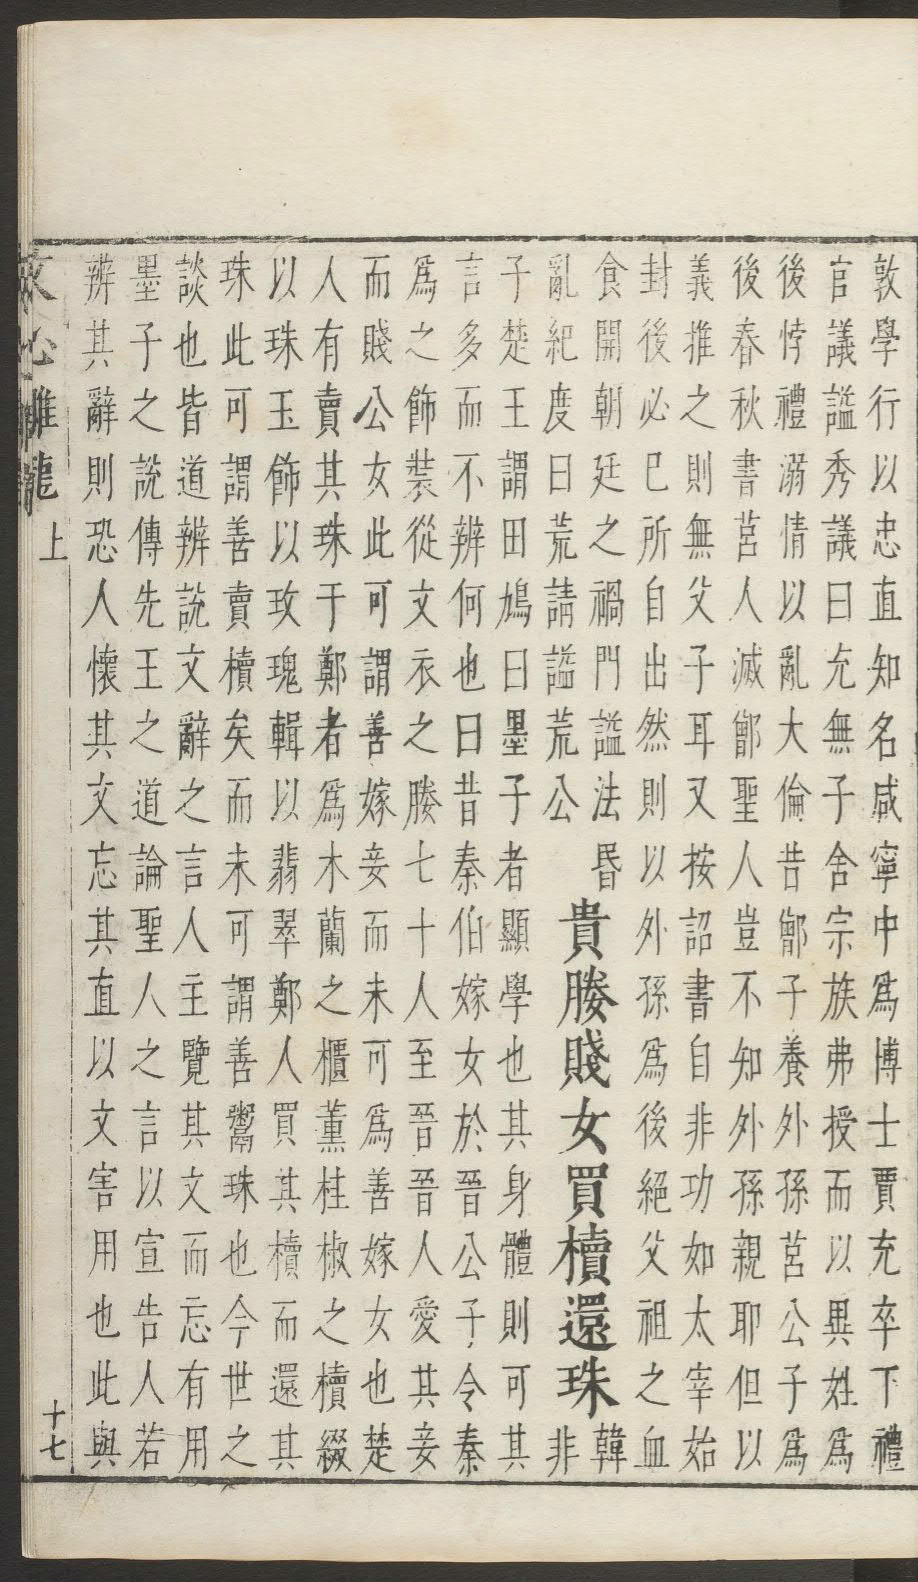 敦學行以忠直知名咸寧中爲博士賈充卒下禮
官議謚秀議曰充無子舍宗族弗授而以異姓爲
後悖禮溺情以亂大倫昔鄫子養外孫莒公子爲
後春秋書莒人滅鄫聖人豈不知外孫親耶但以
義推之則無父子耳又按詔書自非功如太宰始
封後必巳所自出然則以外孫爲後絕父祖之血
食開朝廷之禍門謚法昬
亂紀度曰荒請謚荒公
貴媵賤女買櫝還珠
韓
非
子楚王謂田鳩曰墨子者顯學也其身體則可其
言多而不辨何也曰昔秦伯嫁女於晉公子令秦
爲之飾裝從文衣之媵七十人至晉晉人愛其妾
而賤公女此可謂善嫁妾而未可爲善嫁女也楚
人有賣其珠于鄭者爲木蘭之櫃薰桂椒之櫝綴
以珠玉飾以玫瑰輯以翡翠鄭人買其櫝而還其
珠此可謂善賣櫝矣而未可謂善鬻珠也今世之
談也皆道辨說文辭之言人主覽其文而忘有用
墨子之說傳先王之道論聖人之言以宣告人若
辨其辭則恐人懷其文忘其直以文害用也此與
雕龍
上
十七